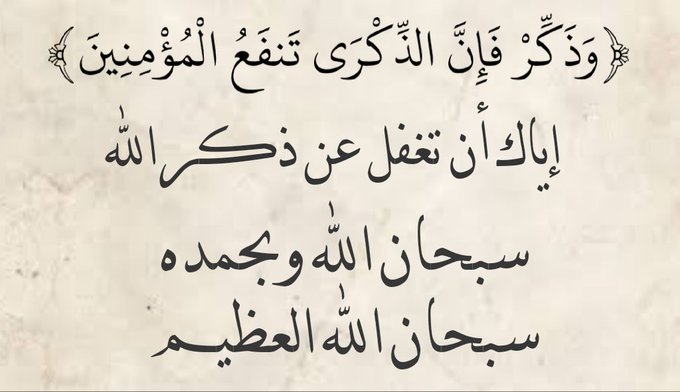 ﴿ وَذَكِّرْ فَإِنَّ الذِّكْرَى تَنفَعُ الْمُؤْمِنِينَ ﴾
إياك أن تغفل عن ذكر الله
سبحان الله وبحمده
سبحان الله العظيم